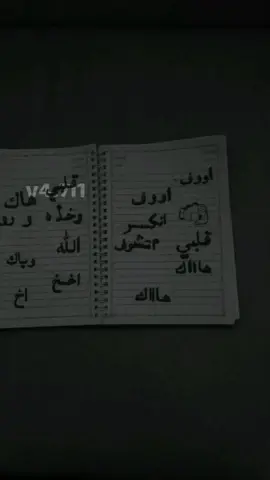 اووف
اووف
انكسر
قلبي متشوف
هاااك
هاااك
قلبي
هاك
وخذه
و رو
الله
وياك
اخخ
اخ